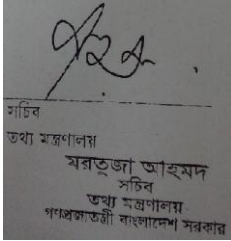 সচিব
তথ্য মন্ত্রণালয়
মরতুজা আহমদ
সচিব
তথ্য মন্ত্রণালয়
গণপ্রজাতন্ত্রী বাংলাদেশ সরকার